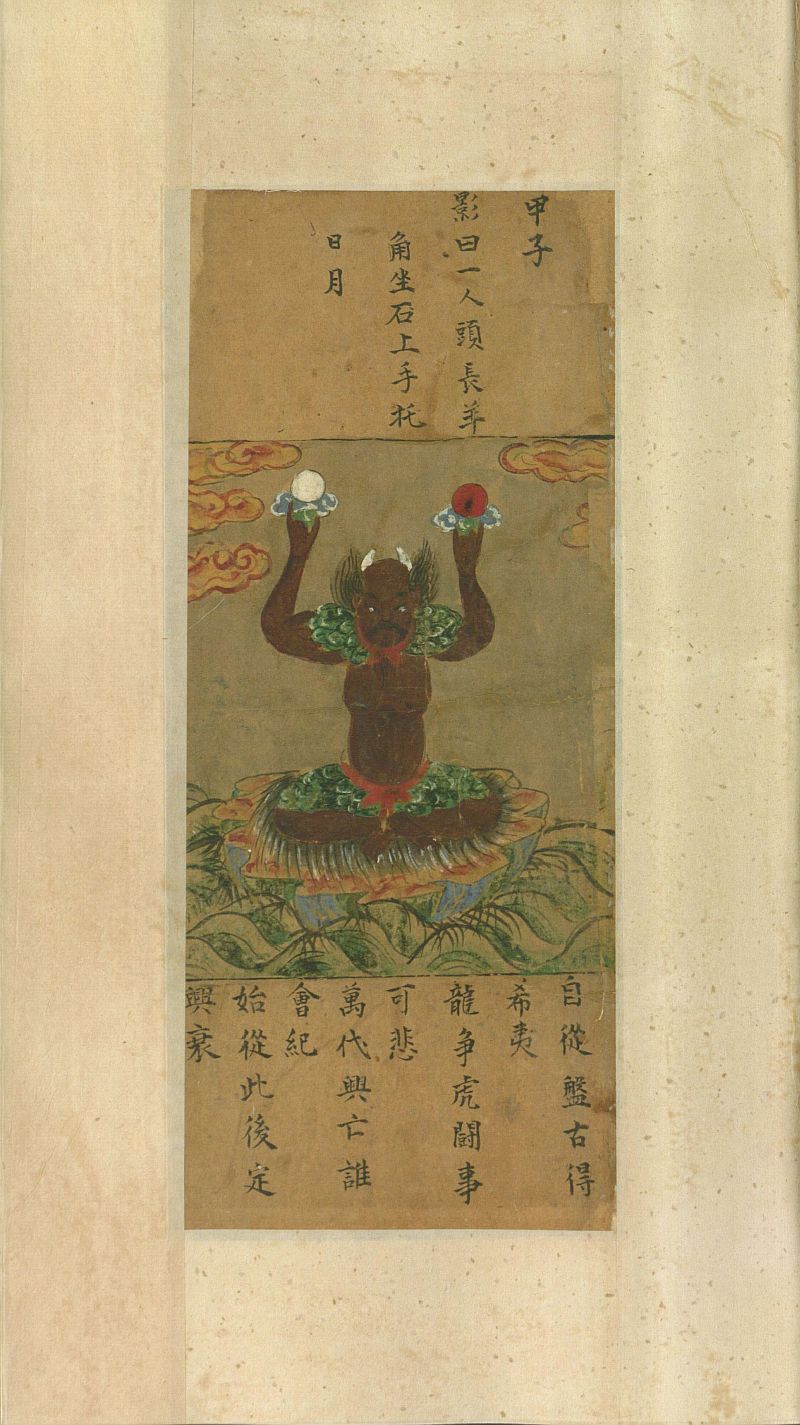 甲子
影曰一人頭長䒶
角坐石上手托
日月
自從盤古得
希夷
龍争虎鬪事
可悲
萬代興亡誰
會紀
始從此後定
興衰